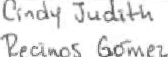 Cindy Judith
Recinos Gómez